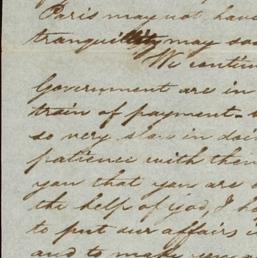 Paris may not have
tranquillity may so
We continu
Government are in
train of payment.
so very slow in doi
patience with them
you that you are
the help of God, I h
to put our affairs i
and to make